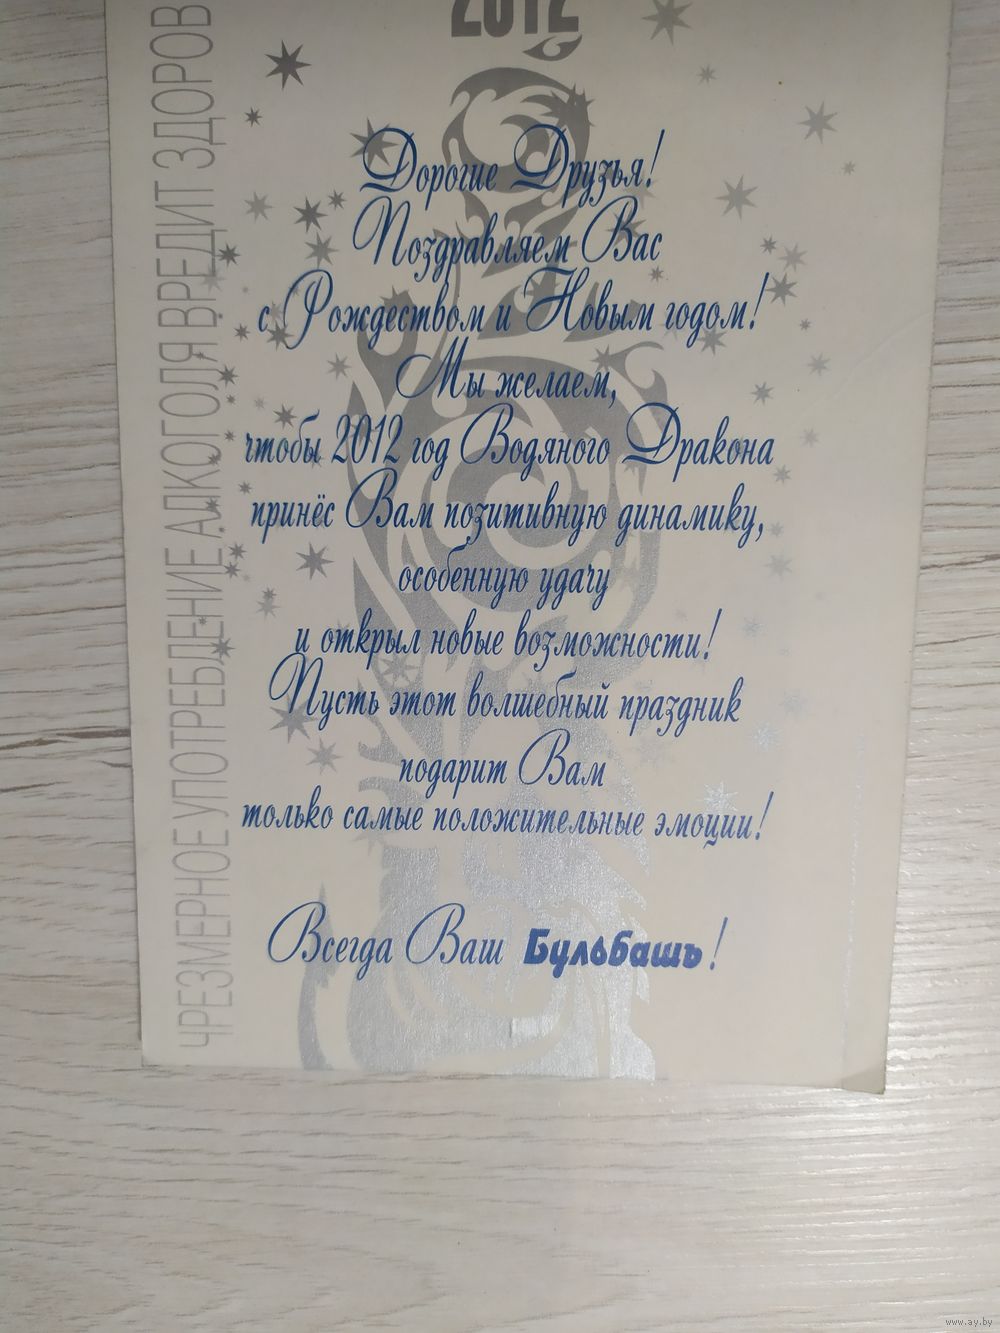 2012
Дорогие Друзья!
Поздравляем Вас
с Рождеством и Новым годом!
Мы желаем,
чтобы 2012 год Водяного Дракона
принёс Вам позитивную динамику,
особенную удачу
и открыл новые возможности!
Пусть этот волшебный праздник
подарит Вам
только самые положительные эмоции!
Всегда Ваш Бульбашъ!
ЧРЕЗМЕРНОЕ УПОТРЕБЛЕНИЕ АЛКОГОЛЯ ВРЕДИТ ЗДОРОВ
www.ay.by